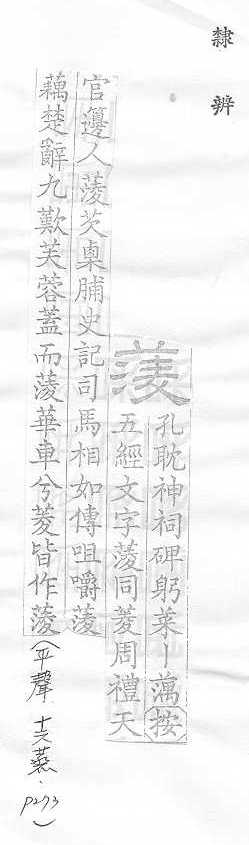 隸辨
蔆
孔耽神祠碑躬菜丨蕅按
五經文字蔆同菱周禮天
官籩人蔆芡㮚脯史記司馬相如傳咀嚼蔆
藕楚辭九歎芙蓉蓋而蔆華車兮菱皆作蔆(平聲.十六蒸.P273)